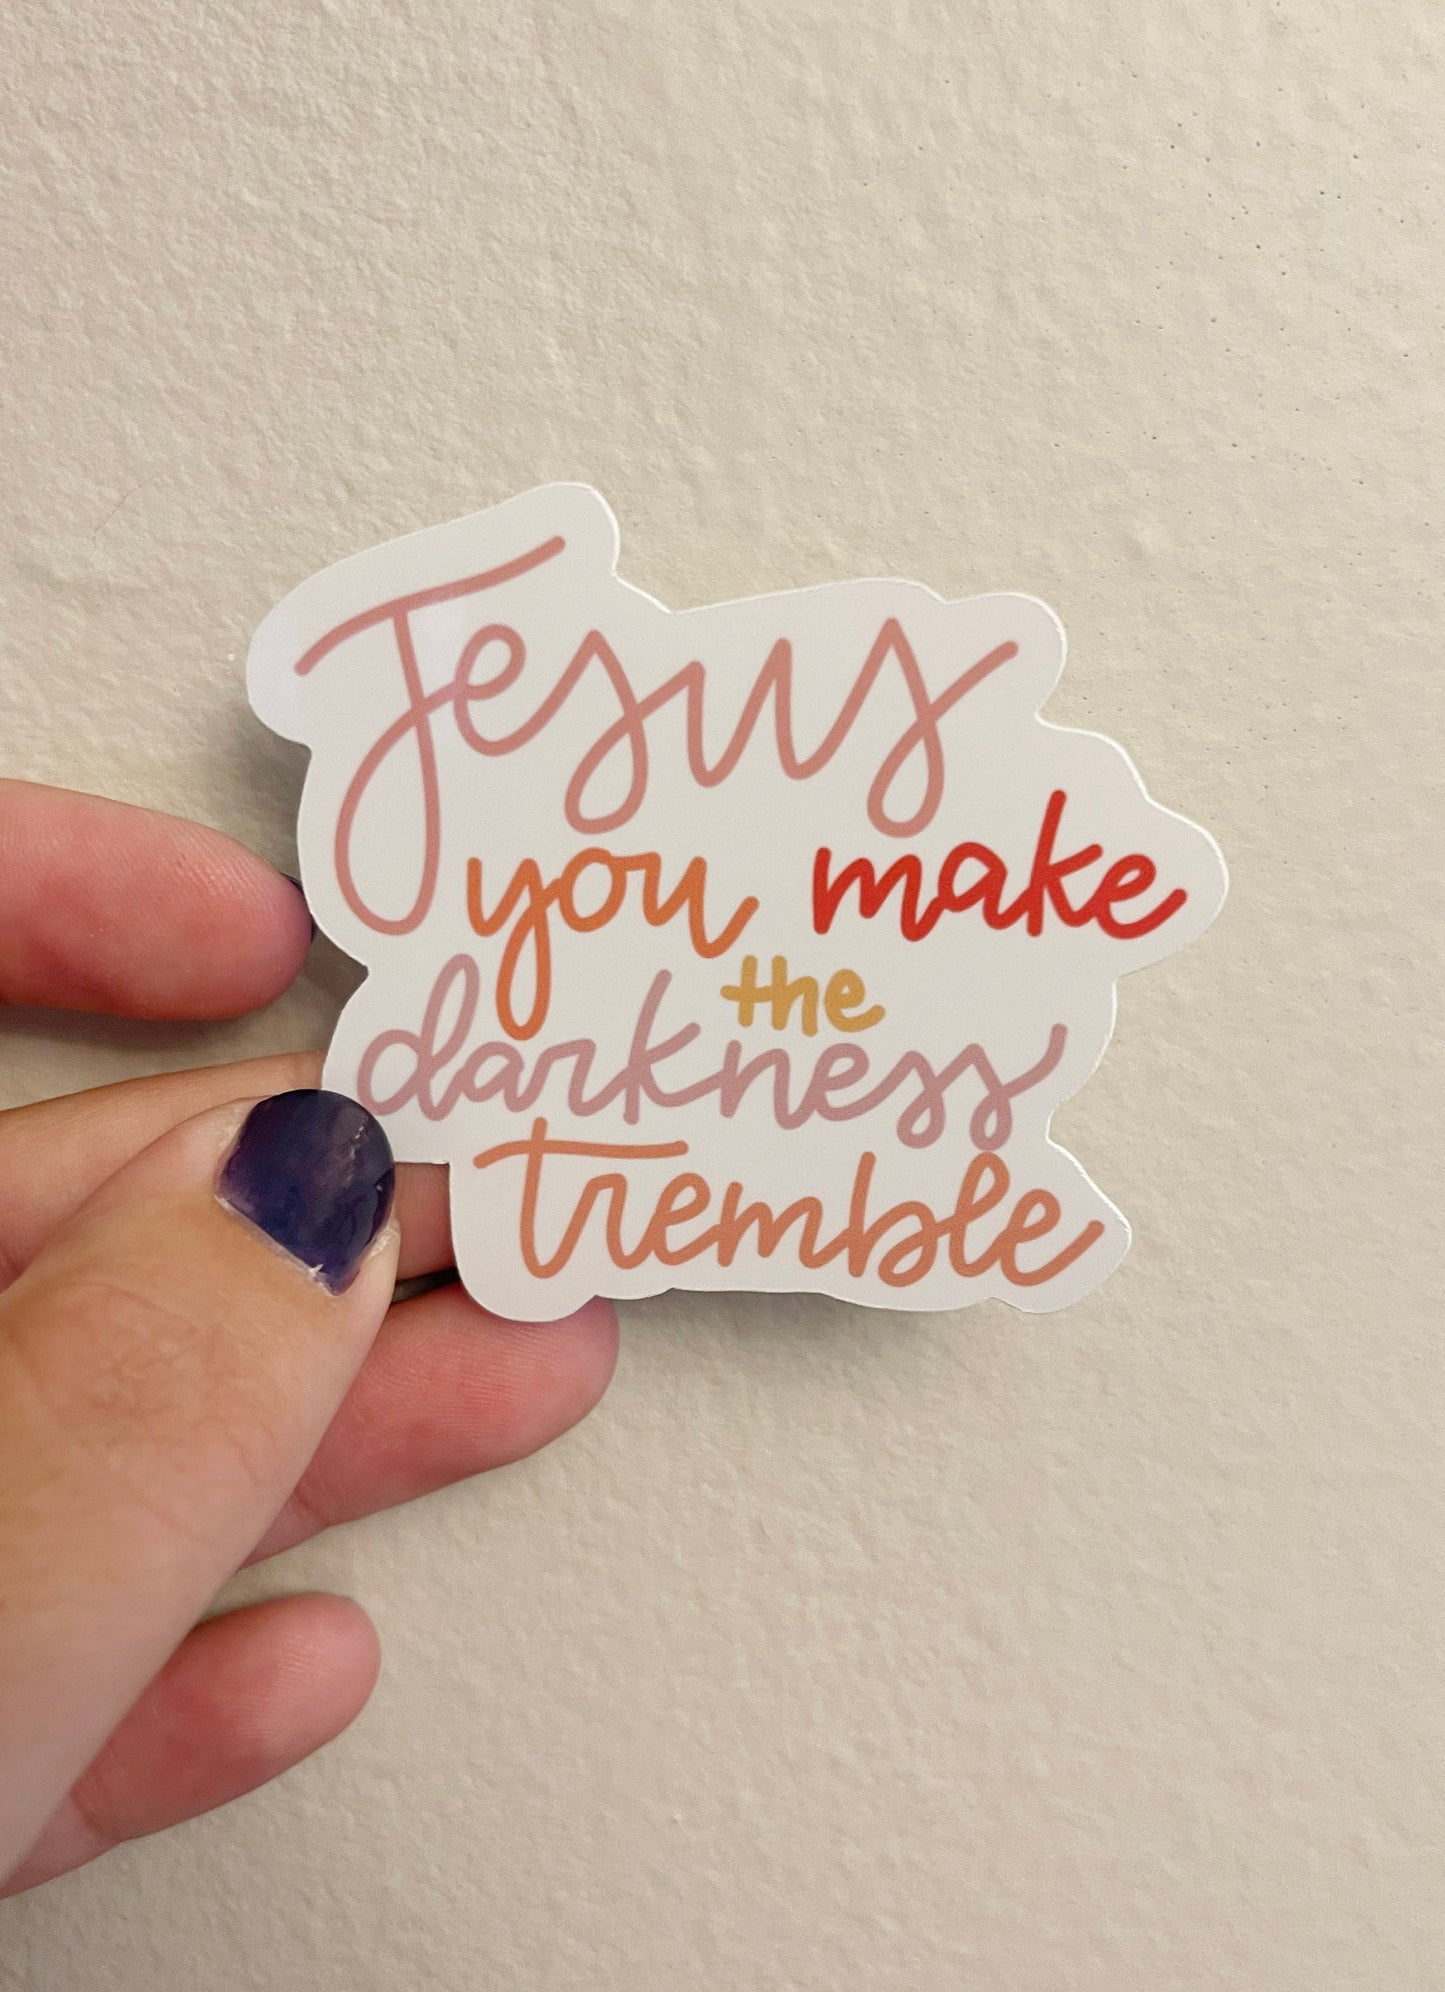 Jesus
you make
the
darkness
tremble